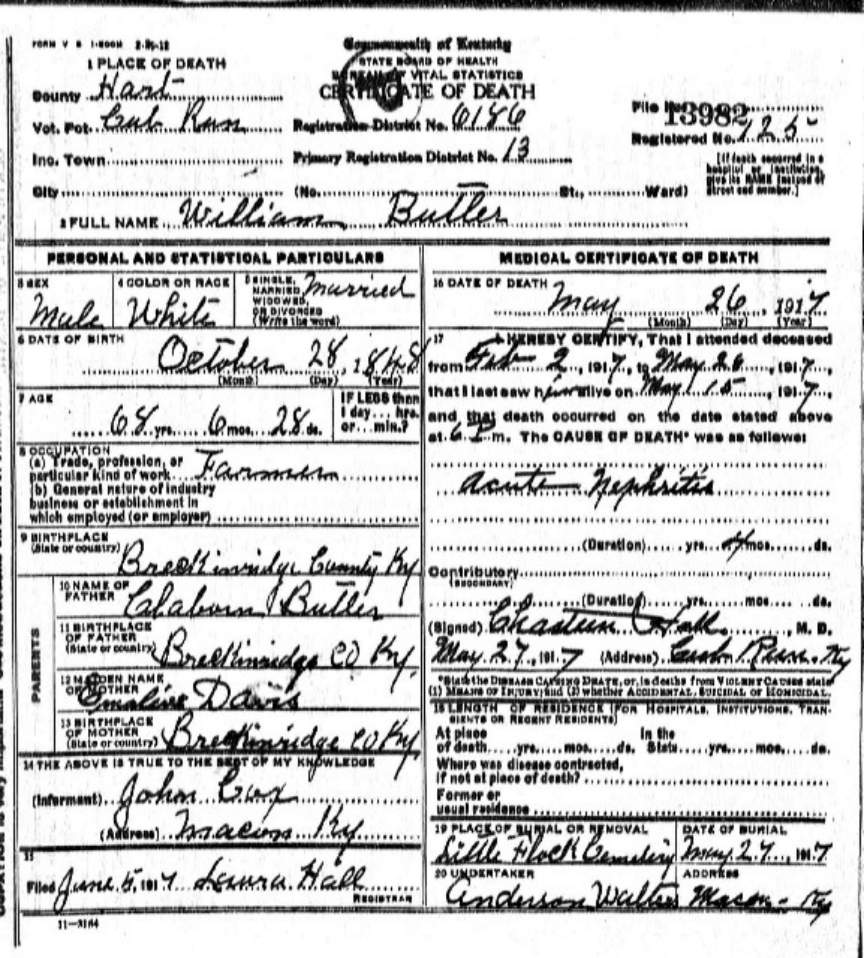 FORM V S 1-500M 2-21-12
Commonwealth of Kentucky
STATE BOARD OF HEALTH
BUREAU OF VITAL STATISTICS
CERTIFICATE OF DEATH
1 PLACE OF DEATH
County Hart
Vot. Pct. Cub Run
Registration District No. 6186
File No. 13982
Registered No. 125
Inc. Town
Primary Registration District No. 13
[If death occurred in a hospital or institution, give its NAME instead of street and number.]
City (No. St., Ward)
2 FULL NAME William Butler
PERSONAL AND STATISTICAL PARTICULARS
3 SEX
Male
4 COLOR OR RACE
White
5 SINGLE, MARRIED, WIDOWED, OR DIVORCED (Write the word)
Married
6 DATE OF BIRTH
October 28, 1848
(Month) (Day) (Year)
7 AGE
68 yrs. 6 mos. 28 ds.
IF LESS than 1 day... hrs. or... min.?
8 OCCUPATION
(a) Trade, profession, or particular kind of work Farmer
(b) General nature of industry
business or establishment in
which employed (or employer)
9 BIRTHPLACE
(State or country) Breckinridge County Ky
PARENTS
10 NAME OF FATHER Claborn Butler
11 BIRTHPLACE OF FATHER (State or country) Breckinridge CO Ky.
12 MAIDEN NAME OF MOTHER Emaline Davis
13 BIRTHPLACE OF MOTHER (State or country) Breckinridge CO Ky.
14 THE ABOVE IS TRUE TO THE BEST OF MY KNOWLEDGE
(Informant) John Cox
(Address) Macon Ky
15
Filed June 5, 1917 Laura Hall
REGISTRAR
11-3184
MEDICAL CERTIFICATE OF DEATH
16 DATE OF DEATH
May 26, 1917
(Month) (Day) (Year)
17 I HEREBY CERTIFY, That I attended deceased
from Feb 2, 1917, to May 26, 1917,
that I last saw him alive on May 15, 1917,
and that death occurred on the date stated above
at 6 P.m. The CAUSE OF DEATH* was as follows:
Acute Nephritis
(Duration) yrs. 4 mos. ds.
Contributory
(SECONDARY)
(Duration) yrs. mos. ds.
(Signed) Chasteen Hall, M. D.
May 27, 1917 (Address) Cub Run Ky
*State the DISEASE CAUSING DEATH, or, in deaths from VIOLENT CAUSES state
(1) MEANS OF INJURY; and (2) whether ACCIDENTAL, SUICIDAL or HOMICIDAL.
18 LENGTH OF RESIDENCE (FOR HOSPITALS, INSTITUTIONS, TRAN-
SIENTS OR RECENT RESIDENTS)
At place In the
of death yrs. mos. ds. State yrs. mos. ds.
Where was disease contracted,
if not at place of death?
Former or
usual residence
19 PLACE OF BURIAL OR REMOVAL
Little Flock Cemetery
DATE OF BURIAL
May 27, 1917
20 UNDERTAKER
Anderson Walters
ADDRESS
Macon - Ky